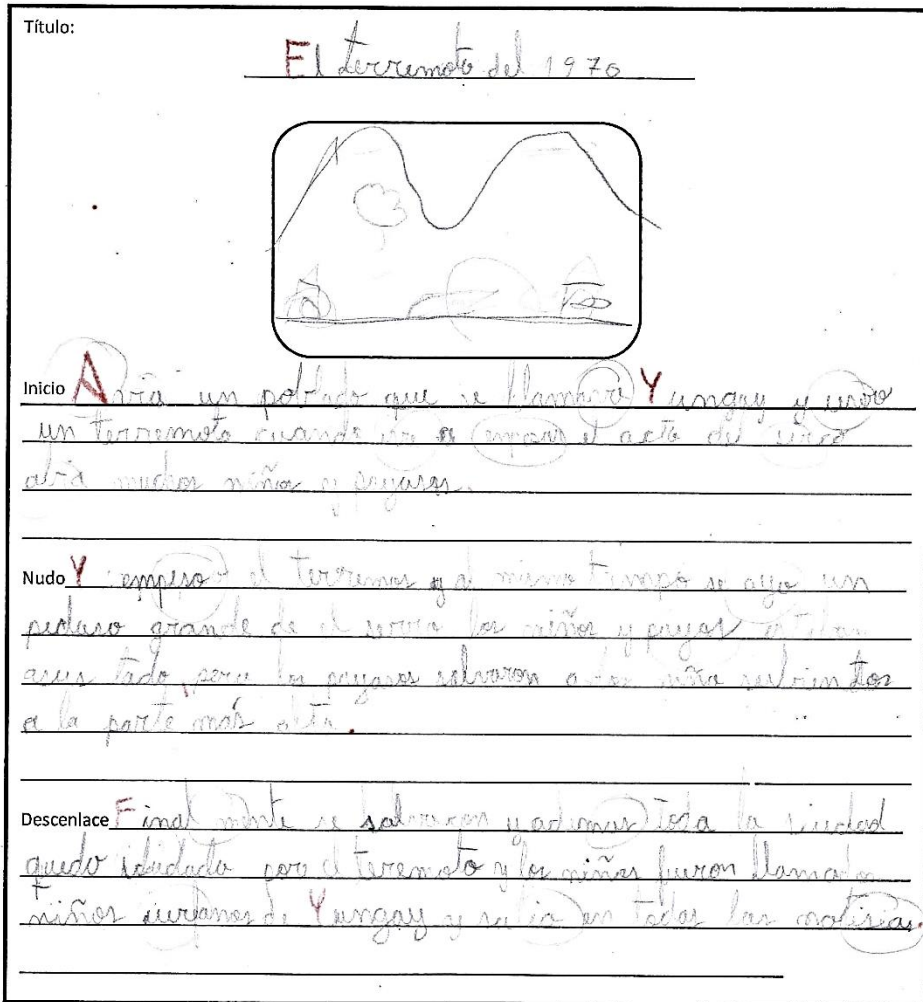 Título:
El terremoto del 1970
Inicio Avia un poblado que se llamava Yungay y
un terremoto cuando el acto del sirco
abia muchos niños y payasos.
Nudo Y empeso el terremot y al mismo tiempo se cayo un
pedaso grande de el serro los niños y payas estaban
asus tado, pero los payasos salvaron a los niño
a la parte más alta.
Descenlace Final mente se salvaron y ademas toda la siudad
quedo por el teremoto y los niños fueron llamados
niños de Yungay y salio en todas las notisias.